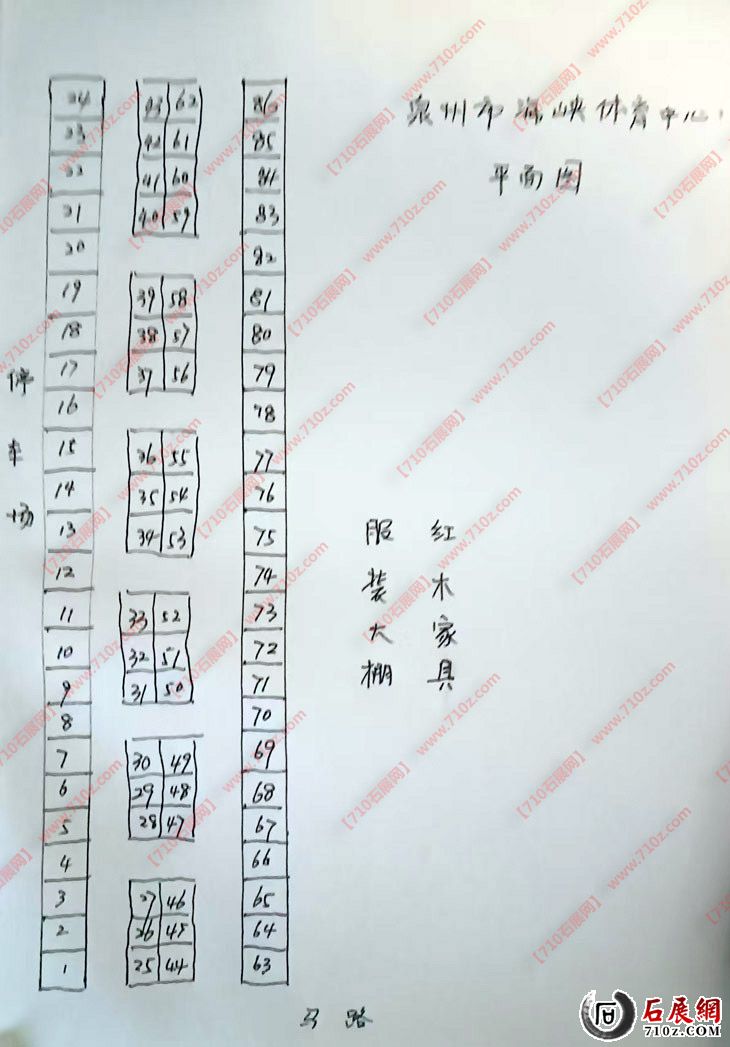 泉州市海峡体育中心
平面图
24 43 62 86
23 42 61 85
22 41 60 84
21 40 59 83
20 82
19 39 58 81
18 38 57 80
17 37 56 79
16 78
15 36 55 77
14 35 54 76
13 34 53 75
12 74
11 33 52 73
10 32 51 72
9 31 50 71
8 70
7 30 49 69
6 29 48 68
5 28 47 67
4 66
3 27 46 65
2 26 45 64
1 25 44 63
停车场
服装大棚
红木家具
马路
【710石展网】 www.710z.com
石展網
710Z.COM